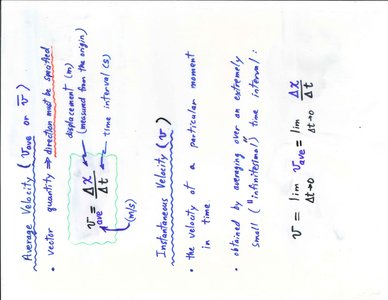 Average Velocity (v_ave or v̅)
• vector quantity ⇒ direction must be specified
v_ave = Δx/Δt
displacement (m)
(measured from the origin)
time interval (s)
(m/s)
Instantaneous Velocity (v)
• the velocity at a particular moment
in time
• obtained by averaging over an extremely
small ("infinitesimal") time interval:
v = lim Δt→0 v_ave = lim Δt→0 Δx/Δt